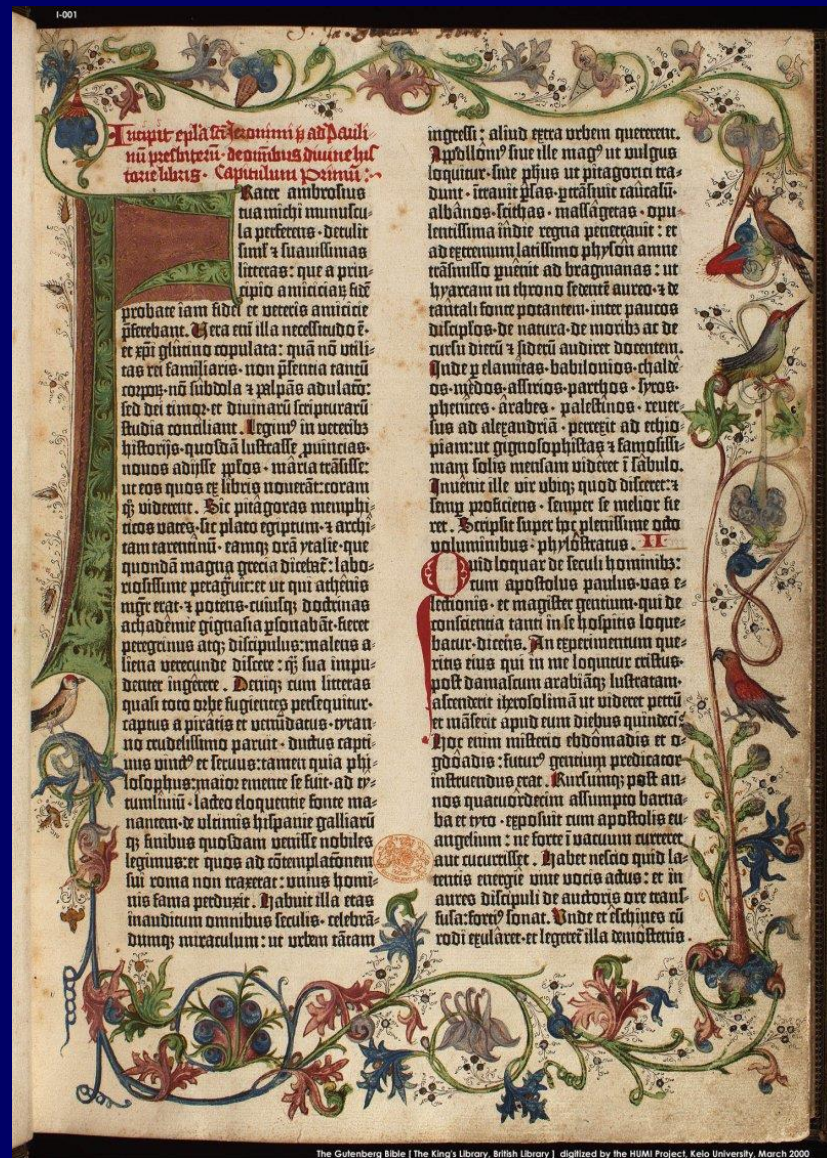 I-001
Incipit epl̃a sc̃i Jeronimi p̃ ad Pauli-
nũ presbiterũ · de om̃ibus diuine his
torie libris · Capitulum Primũ :
FRater ambrosius
tua michi munuscu-
la perferens · detulit
siml̕ ⁊ suauissimas
litteras : que a prin-
cipio amiciciaꝝ fidẽ
probate iam fidei et veteris amicicie
p̃ferebant . Vera eni illa necessitudo ẽ ·
et xp̃i glutino copulata : quã nõ vtili-
tas rei familiaris · non p̃sentia tantũ
corpoꝝ · nõ subdola ⁊ palpãs adulatõ :
sed dei timor · et diuinarũ scripturarũ
studia conciliant . Legimꝰ in veteribꝫ
historijs · quosdã lustrasse ꝓuincias ·
nouos adijsse pp̃los · maria trãsisse :
ut eos quos ex libris nouerãt : coram
qꝫ viderent . Sic pitagoras memphi-
ticos vates · sic plato egiptum · ⁊ archi-
tam tarentinũ · eamqꝫ orã ytalie · que
quondã magna grecia dicebat̃ : labo-
riosissime peragͥuit : et ut qui athenis
mgr̃ erat · ⁊ potens · cuiusqꝫ doctrinas
achademie gignasia ꝑsonabãt · fieret
peregrinus atqꝫ discipulus : malens a-
liena verecunde discere : qꝫ̃ sua impu-
denter ingerere . Deniqꝫ cum litteras
quasi toto orbe fugientes persequitur ·
captus a piratis et venũdatus · tyran-
no crudelissimo paruit · ductus capti-
uus vinctꝰ et seruus : tamen quia phi-
losophus : maior emente se fuit · ad ty-
tumliuiũ · lacteo eloquentie fonte ma-
nantem · de vltimis hispanie galliarũ
qꝫ finibus quosdam venisse nobiles
legimus : et quos ad cõtemplatõnem
sui roma non traxerat : vnius homi-
nis fama perduxit . Habuit illa etas
inauditum omnibus seculis · celebrã-
dumqꝫ miraculum : ut urbem tãtam
ingressi : aliud extra urbem quererent .
Appollõniꝰ siue ille magꝰ ut vulgus
loquitur · siue ph̃us ut pitagorici tra-
dunt · ĩtrauit ꝑsas · ptrãsiuit caucasũ ·
albanos · scithas · massagetas · opu-
lentissima indie regna penetrauit : et
ad extremum latissimo physon amne
trãsmisso ꝑuenit ad bragmanas : ut
hyarcam in throno sedentẽ aureo · ⁊ de
tantali fonte potantem · inter paucos
discipl̕os · de natura · de moribꝫ ac de
cursu dierũ ⁊ siderũ audiret docentem .
Inde ꝑ elamitas · babilonios · chalde
os · medos · assirios · parthos · syros ·
phenices · arabes · palestinos · reuer-
sus ad alexandriã · perrexit ad ethio-
piam : ut gignosophistas ⁊ famosissi-
mam solis mensam videret ĩ sabulo .
Inuenit ille vir vbiqꝫ quod disceret : ⁊
semꝑ proficiens · semper se melior fie
ret . Scripsit super hoc plenissime octo
voluminibus · phylostratus . II
Quid loquar de seculi hominibꝫ :
cum apostolus paulus · vas e-
lectionis · et magister gentium · qui de
conscientia tanti in se hospitis loque-
batur · dicens . An experimentum que-
ritis eius qui in me loquitur cristus ·
post damascum arabiãqꝫ lustratam ·
ascenderit iherosolimã ut videret petrũ
et mãserit apud eum diebus quindeci .
Hoc enim misterio ebdomadis et o-
gdoadis : futurꝰ gentium predicator
instruendus erat . Rursumqꝫ post an-
nos quatuordecim assumpto barna-
ba et tyto · exposuit cum apostolis eu-
angelium : ne forte ĩ vacuum curreret
aut cucurrisset . Habet nescio quid la-
tentis energie viue vocis actus : et in
aures discipuli de auctoris ore trans-
fusa : fortiꝰ sonat . Vnde et eschines cũ
rodi exularet · et legeret̃ illa demostenis .
The Gutenberg Bible [ The King's Library, British Library ] digitized by the HUMI Project, Keio University, March 2000